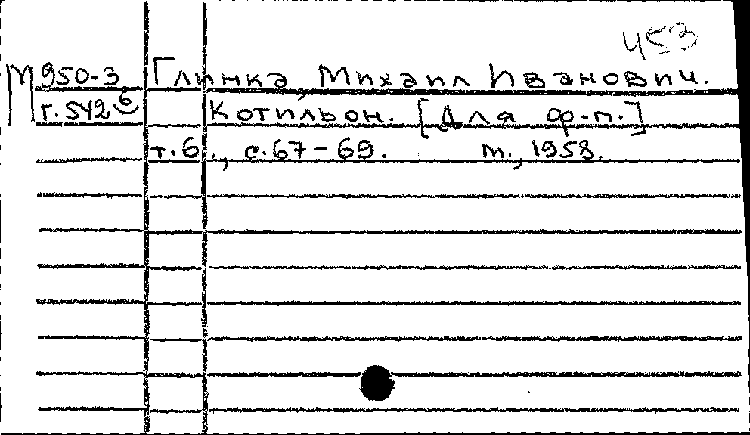 453
М950-3 Глинка, Михаил Иванович.
Г.542б Котильон. [Для ф-п.]
т.6., с.67-69. М., 1958.